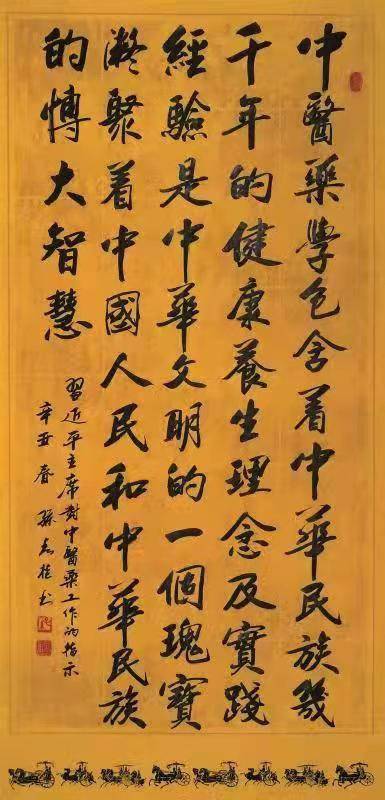 中醫藥學包含着中華民族幾
千年的健康養生理念及實踐
經驗是中華文明的一個瑰寶
凝聚着中國人民和中華民族
的愽大智慧
習近平主席對中醫藥工作的指示
辛丑春 孫